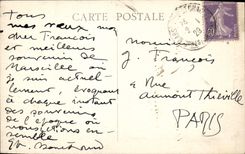 CARTE POSTALE
Tous
mes vœux mon
cher François
et meilleurs
souvenirs de
Marseille où
je suis actuel
lement, évoquant
à chaque instant
des souvenirs
de l'époque où
nous étions en-
semble
Monsieur
J. François
4 Rue
Aumont Thiéville
PARIS